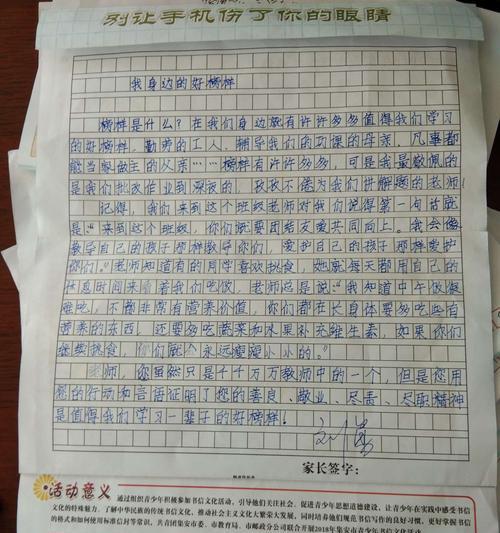 别让手机伤了你的眼睛
我身边的好榜样
榜样是什么?在我们身边就有许许多多值得我们学习
的好榜样,勤劳的工人,辅导我们的功课的母亲,凡事都
能当家做主的父亲……榜样有许许多多,可是我最敬佩的
是我们批改作业到深夜的,孜孜不倦为我们讲解题的老师
记得,我们来到这个班级老师对我们说得第一句话就
是:“来到这个班级,你们就要团结友爱共同向上。我会像
教导自己的孩子那样教导你们,爱护自己的孩子那样爱护
你们。”老师知道有的同学喜欢挑食,她就每天都用自己的
休息时间来陪着我们吃饭,老师总是说:“我知道中午做
难吃,不都非常有营养价值,你们都在长身体要多吃些有
营养的东西,还要多吃蔬菜和水果补充维生素,如果你们
继续挑食,你们就会永远瘦瘦小小的。”
老师,您虽然只是千千万万教师中的一个,但是您用
您的行动和言语证明了您的善良、敬业、尽责、尽职精神
是值得我们学习一辈子的好榜样!
家长签字:
活动意义
通过组织青少年积极参加书信文化活动,引导他们关注社会,促进青少年思想道德建设,让青少年在实践中感受书信
文化的特殊魅力,了解中华民族的传统书信文化,推动社会主义文化大繁荣大发展,同时培养他们规范书信写作的良好习惯,更好掌握书信
的格式和如何使用标准信封等常识,共青团集安市委、市教育局、市邮政分公司联合开展2018年集安市青少年书信文化活动